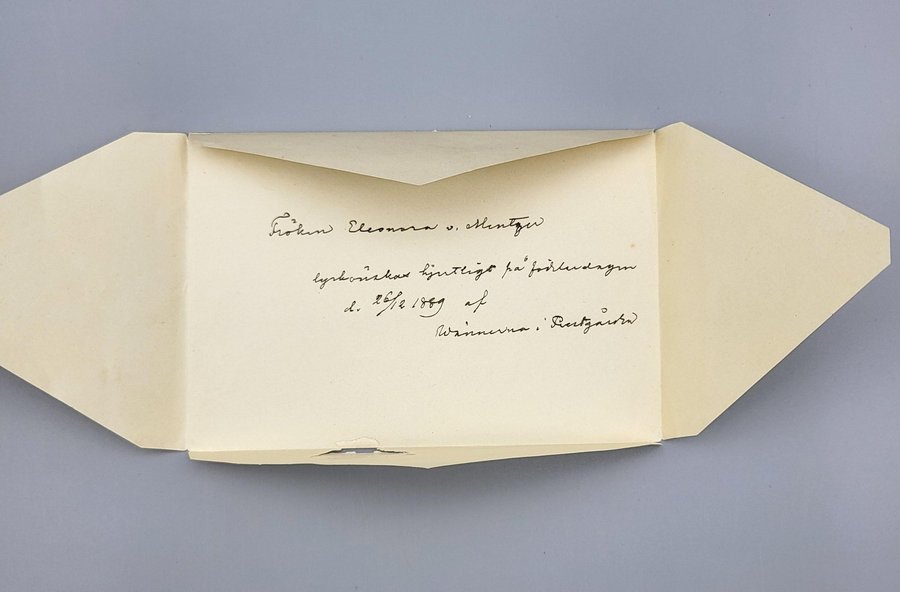 Fröken Eleonora v. Mentzer
lyckönskas hjertligt på födelsedagen
d. 26/12 1889 af
Wännerna i Prestgården